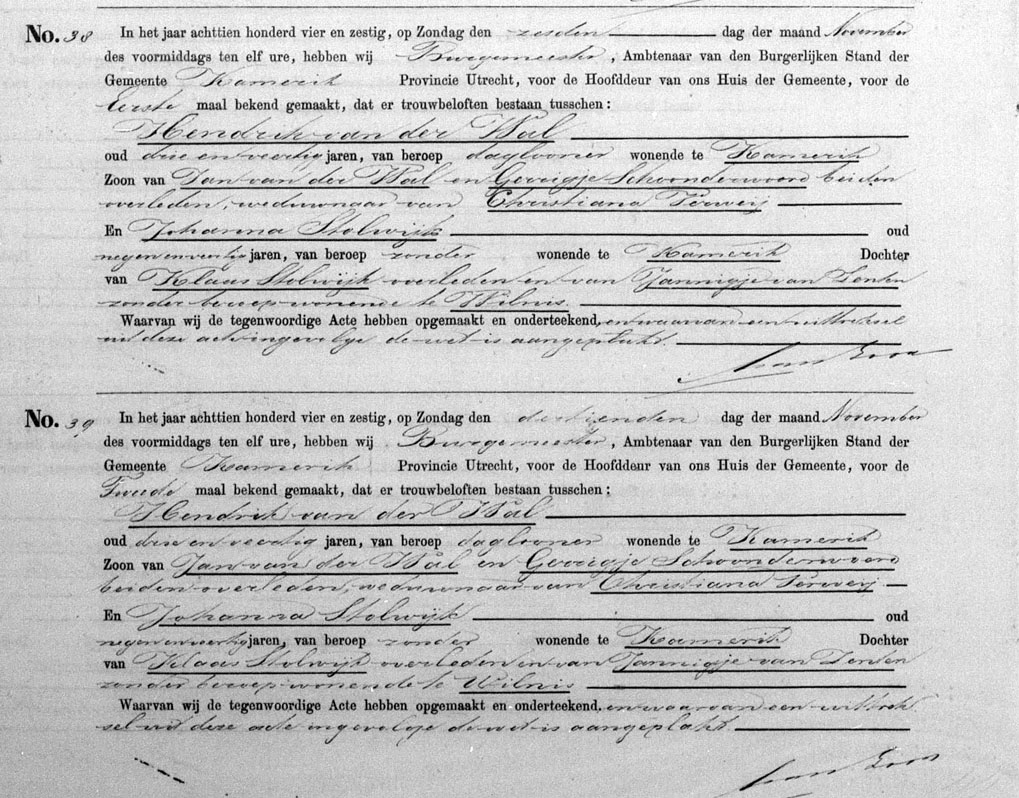 No. 38 In het jaar achttien honderd vier en zestig, op Zondag den zesden dag der maand November
des voormiddags ten elf ure, hebben wij Burgemeester, Ambtenaar van den Burgerlijken Stand der
Gemeente Kamerik Provincie Utrecht, voor de Hoofddeur van ons Huis der Gemeente, voor de
Eerste maal bekend gemaakt, dat er trouwbeloften bestaan tusschen:
Hendrik van der Wal
oud drie en veertig jaren, van beroep daglooner wonende te Kamerik
Zoon van Jan van der Wal en Gerrigje Schoonderwoerd beiden
overleden, weduwnaar van Christiana Verweij
En Johanna Stolwijk oud
negen en veertig jaren, van beroep zonder wonende te Kamerik Dochter
van Klaas Stolwijk overleden en van Jannigje van Zenten
zonder beroep wonende te Wilnis.
Waarvan wij de tegenwoordige Acte hebben opgemaakt en onderteekend, en waarvan een uittreksel
uit deze acte ingevolge de wet is aangeplakt.
No. 39 In het jaar achttien honderd vier en zestig, op Zondag den dertienden dag der maand November
des voormiddags ten elf ure, hebben wij Burgemeester, Ambtenaar van den Burgerlijken Stand der
Gemeente Kamerik Provincie Utrecht, voor de Hoofddeur van ons Huis der Gemeente, voor de
Tweede maal bekend gemaakt, dat er trouwbeloften bestaan tusschen:
Hendrik van der Wal
oud drie en veertig jaren, van beroep daglooner wonende te Kamerik
Zoon van Jan van der Wal en Gerrigje Schoonderwoerd
beiden overleden, weduwnaar van Christiana Verweij
En Johanna Stolwijk oud
negen en veertig jaren, van beroep zonder wonende te Kamerik Dochter
van Klaas Stolwijk overleden en van Jannigje van Zenten
zonder beroep wonende te Wilnis
Waarvan wij de tegenwoordige Acte hebben opgemaakt en onderteekend, en waarvan een uittrek
sel uit deze acte ingevolge de wet is aangeplakt.